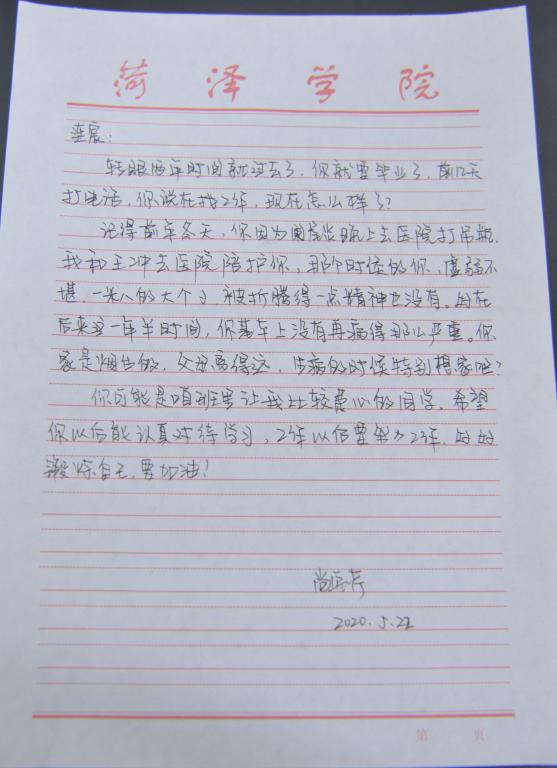 菏泽学院
转眼两年时间就过去了,你就要毕业了,前几天
打电话,你说在找工作,现在怎么样了?
记得前年冬天,你因为阑尾炎晚上去医院打吊瓶.
我和王冲去医院陪护你,那个时候的你,虚弱不
堪,一米八的大个子,被折腾得一点精神也没有。好在
后来这一年半时间,你基本上没有再病得那么严重。你
家是烟台的,父母离得远,生病的时候特别想家吧?
你可能是咱班里让我比较费心的同学,希望
你以后能认真对待学习,工作以后要努力工作,好好
锻炼自己,要加油!
2020.5.22
第 页